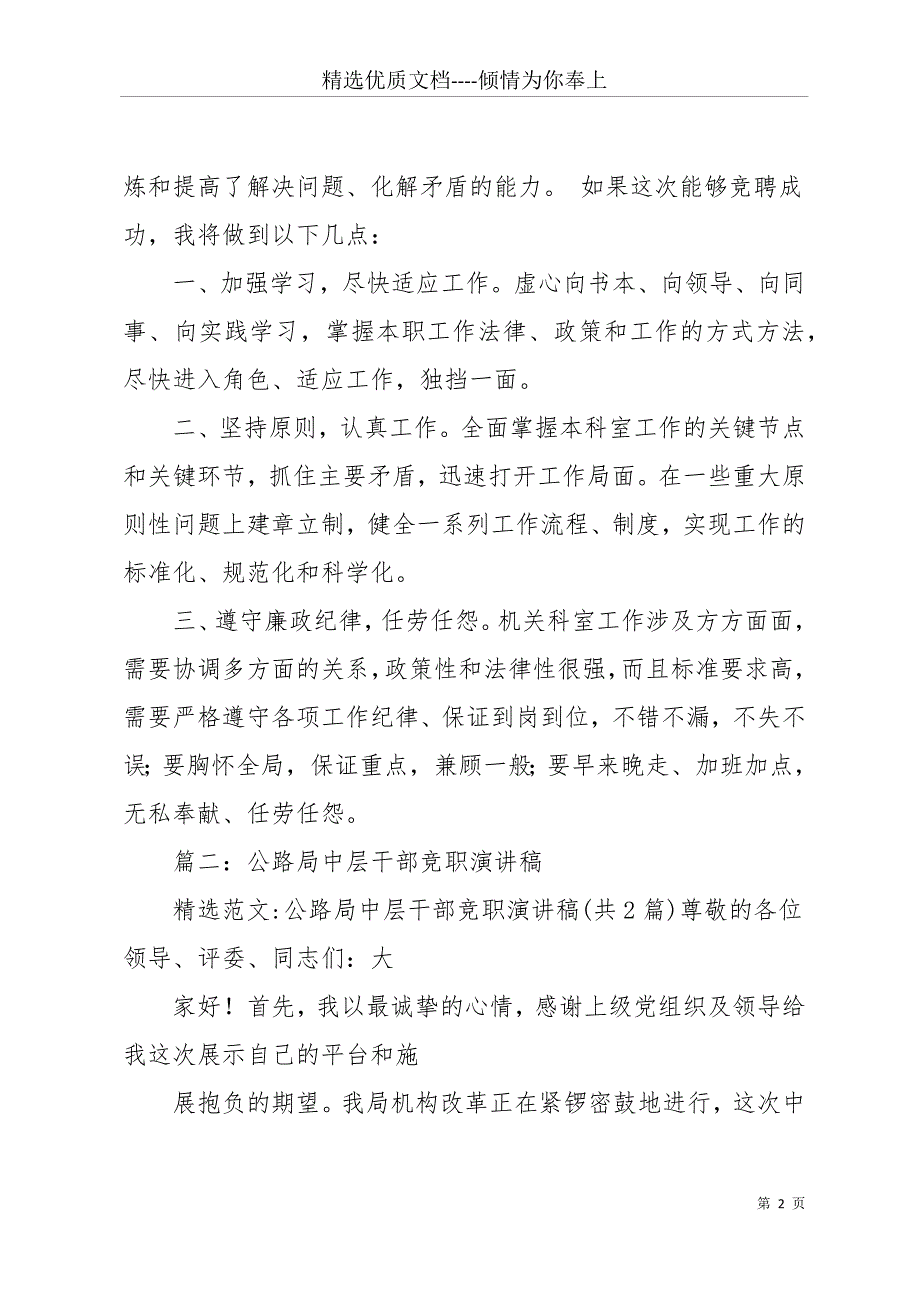 精选优质文档----倾情为你奉上
炼和提高了解决问题、化解矛盾的能力。 如果这次能够竞聘成
功，我将做到以下几点：
一、加强学习，尽快适应工作。虚心向书本、向领导、向同
事、向实践学习，掌握本职工作法律、政策和工作的方式方法，
尽快进入角色、适应工作，独挡一面。
二、坚持原则，认真工作。全面掌握本科室工作的关键节点
和关键环节，抓住主要矛盾，迅速打开工作局面。在一些重大原
则性问题上建章立制，健全一系列工作流程、制度，实现工作的
标准化、规范化和科学化。
三、遵守廉政纪律，任劳任怨。机关科室工作涉及方方面面，
需要协调多方面的关系，政策性和法律性很强，而且标准要求高，
需要严格遵守各项工作纪律、保证到岗到位，不错不漏，不失不
误；要胸怀全局，保证重点，兼顾一般；要早来晚走、加班加点，
无私奉献、任劳任怨。
篇二：公路局中层干部竞职演讲稿
精选范文:公路局中层干部竞职演讲稿(共２篇)尊敬的各位
领导、评委、同志们：大
家好！首先，我以最诚挚的心情，感谢上级党组织及领导给
我这次展示自己的平台和施
展抱负的期望。我局机构改革正在紧锣密鼓地进行，这次中
第 2 页